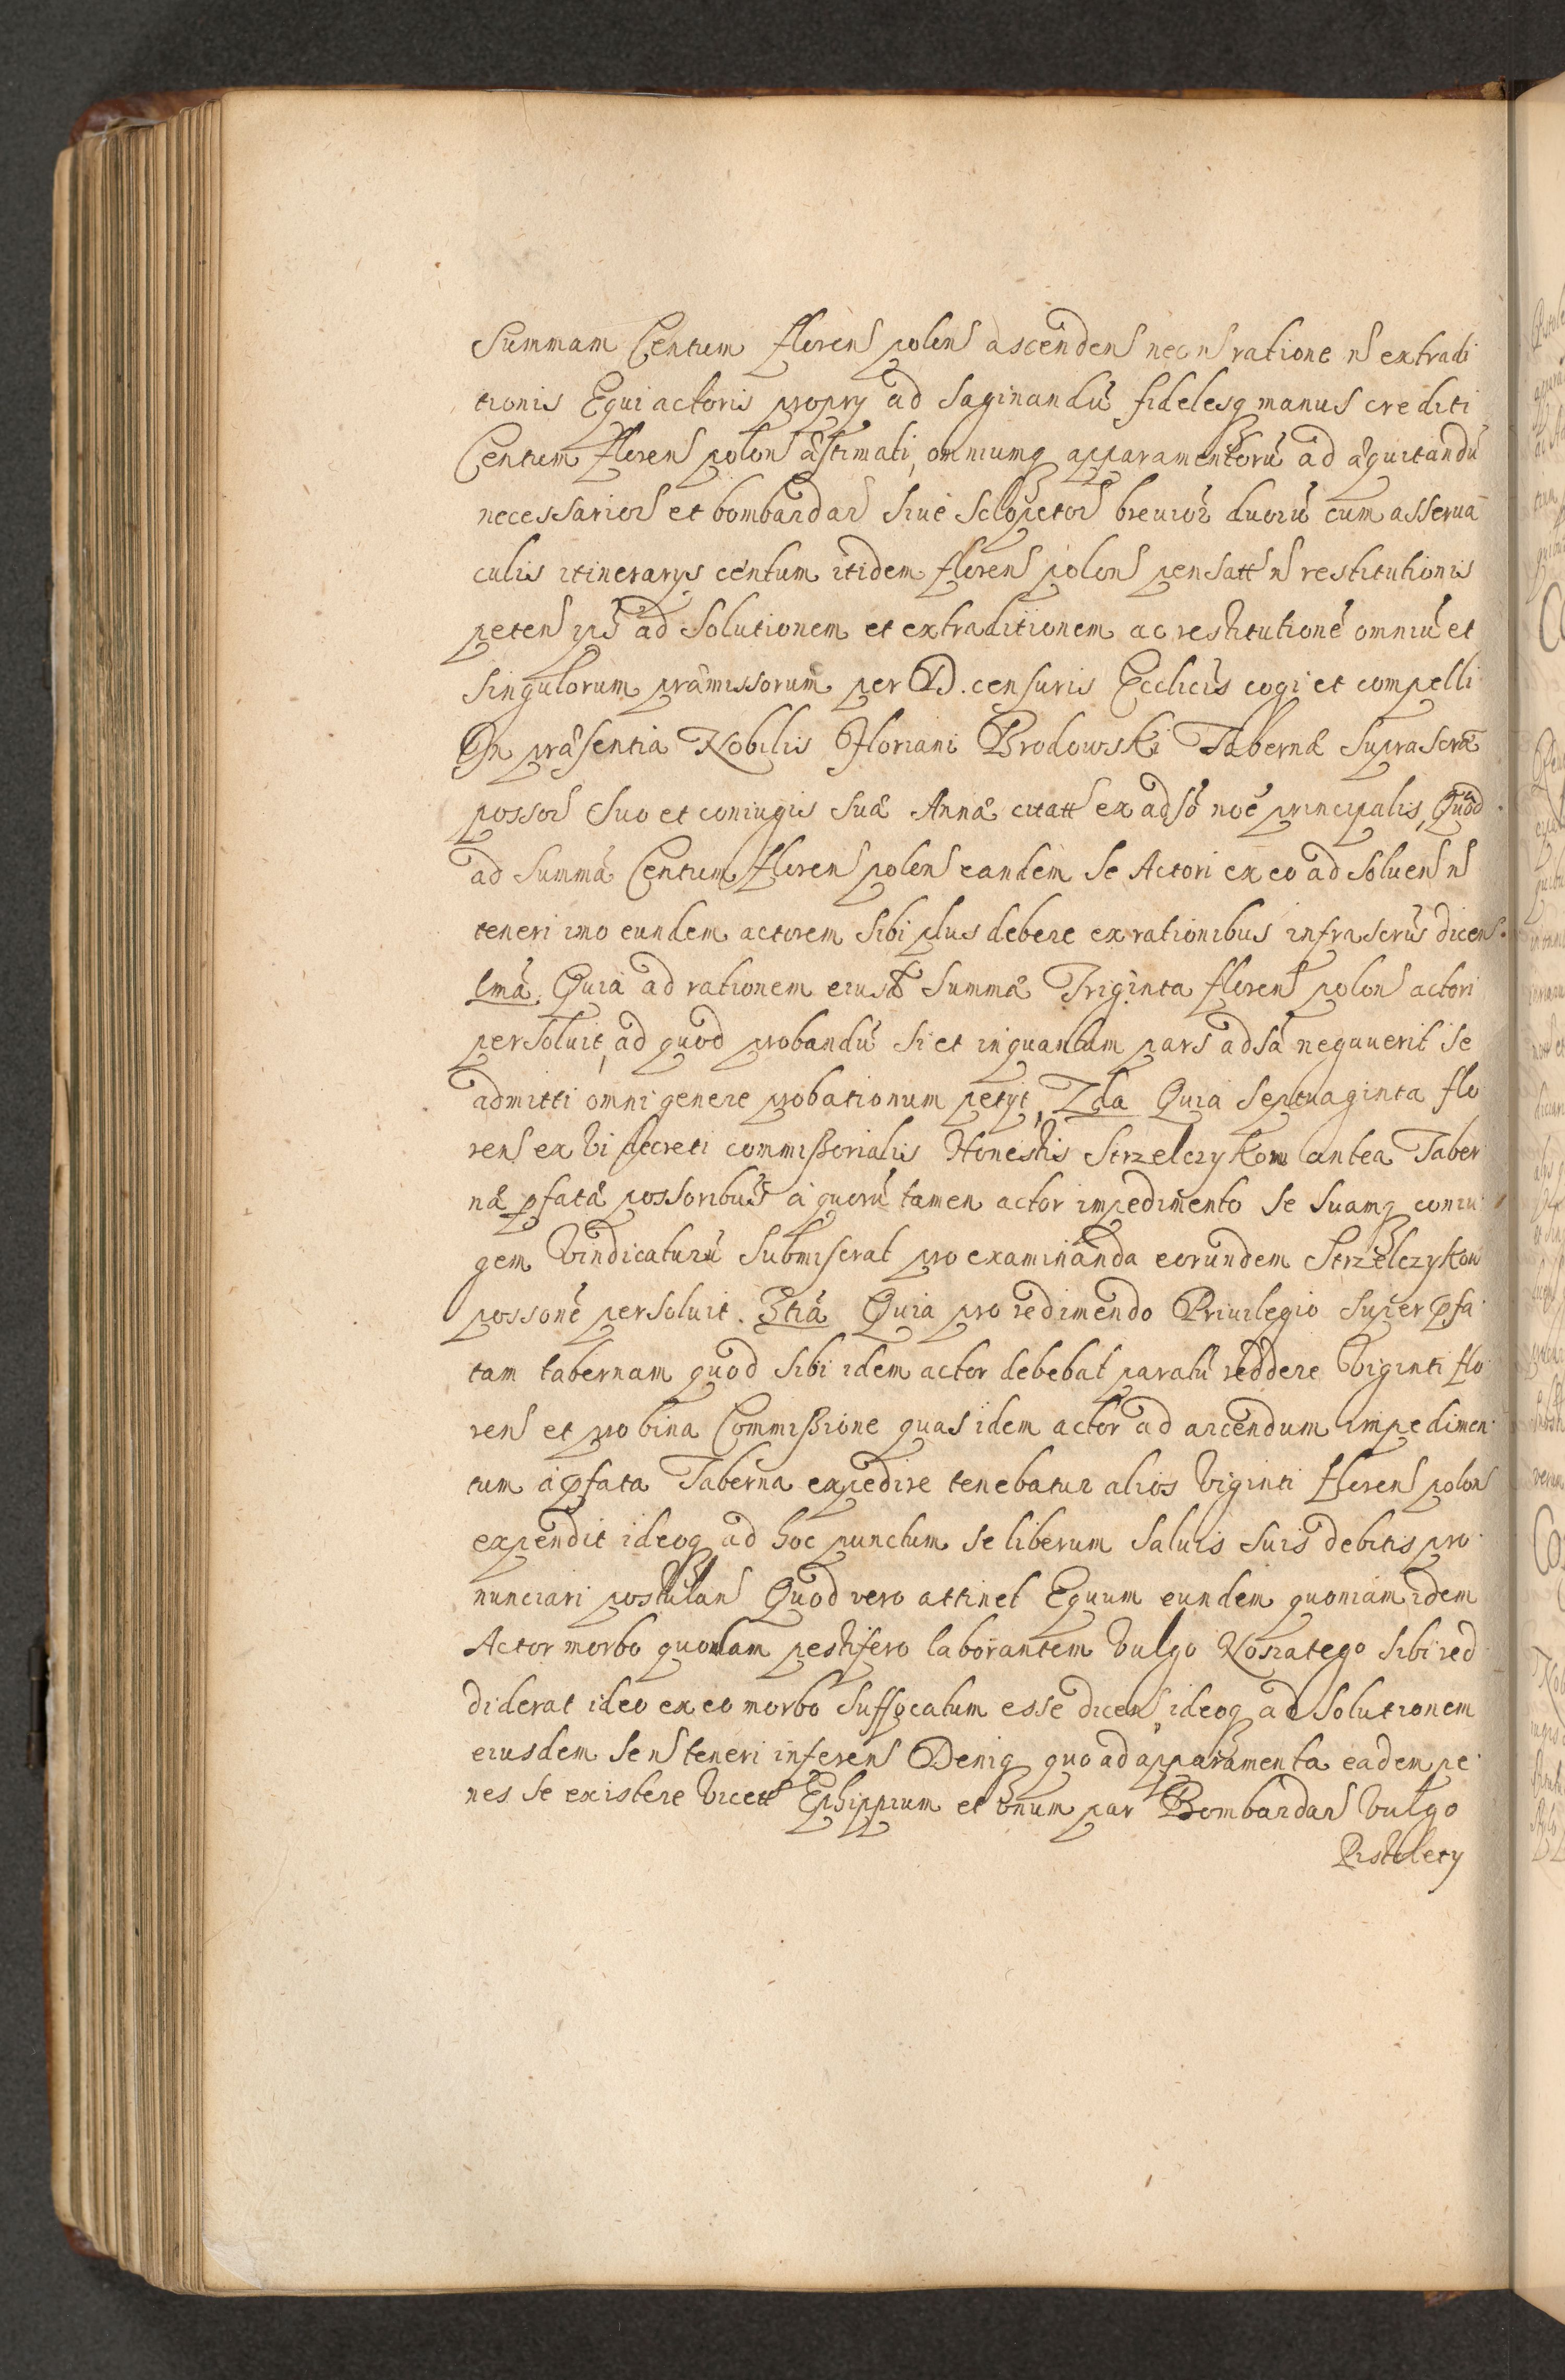 Summam Centum floren polon ascenden necn ratione n extradi
tionis Equi actoris proprÿ ad saginandū fidelesq manus crediti
Centum floren polon æstimati, omniumq apparamentorū ad æquitandū
necessarior et bombardar siue sclopetor breuior duorū cum asserua
culis itinerarÿs centum itidem floren polon pensatt n restitutionis
peten ips ad solutionem et extraditionem ac restitutionē omniū et
singulorum præmissorum per D. censuris Ecclicis cogi et compelli
In præsentia Nobilis Floriani Brodowski Tabernæ suprascræ
possor suo et coniugis suæ Annæ citatt ex adso noe principalis, Quod
ad summā Centum floren polon eandem se Actori ex eo ad soluen n
teneri imo eundem actorem sibi plus debere ex rationibus infrascris dicen.
1mā. Quia ad rationem eiusd summæ Triginta floren polon actori
persoluit, ad quod probandū si et inquantum pars adsa negauerit se
admitti omni genere probationum petÿt, 2da Quia septuaginta flo
ren ex vi decreti commissorialis Honestis Strzelczykom antea Taber
næ pfatæ possoribus à quorū tamen actor impedimento se suamq coniu
gem vindicaturū submiserat pro examinanda eorundem Strzelczykow
possonē persoluit. 3tiā Quia pro redimendo Priuilegio super pfa
tam tabernam quod sibi idem actor debebat paratū reddere Viginti flo
ren et pro bina Commissione quas idem actor ad arcendum impedimen
tum à pfata Taberna expedire tenebatur alios Viginti floren polon
expendit ideoq ad hoc punctum se liberum saluis suis debitis pro
nunciari postulan Quod vero attinet Equum eundem quoniam idem
Actor morbo quodam pestifero laborantem vulgo Nosatego sibi red
diderat ideo ex eo morbo suffocatum esse dicen, ideoq ad solutionem
eiusdem se n teneri inferen Deniq quo ad apparamenta eadem pe
nes se existere vicett Ephippium et vnum par Bombardar vulgo
Pistolety